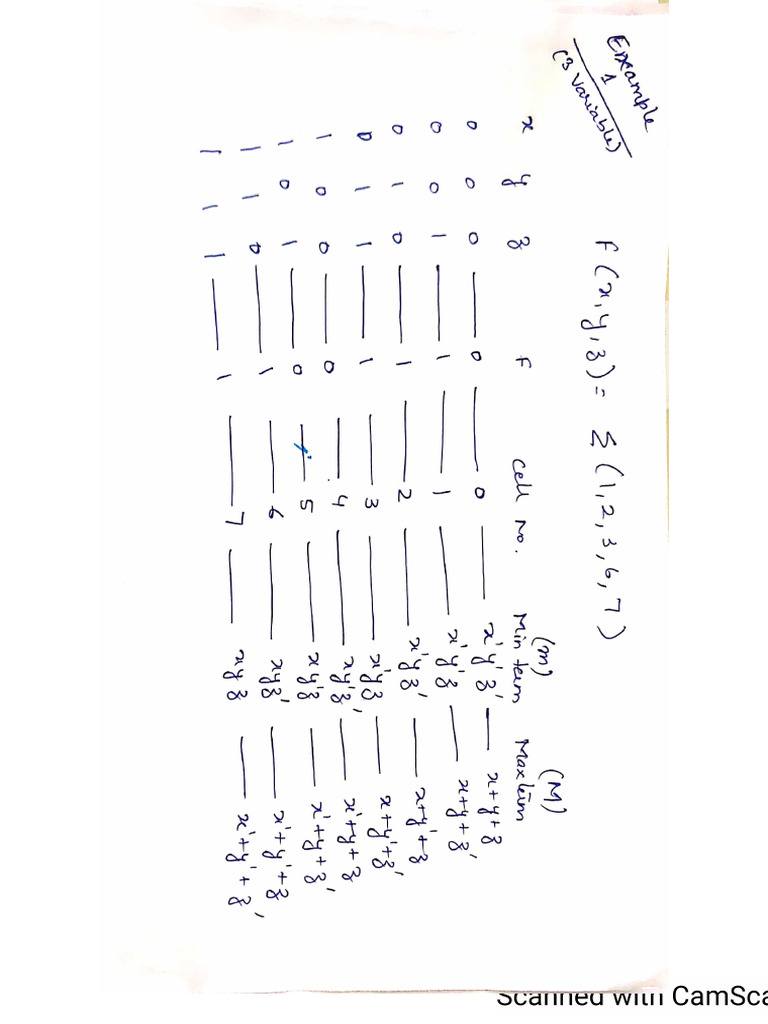 Example 1
(3 variable)
F(x,y,z) = Σ(1,2,3,6,7)
(m) (M)
x y z F Cell No. Min term Maxterm
0 0 0 — 0 — 0 — x'y'z' — x+y+z
0 0 1 — 1 — 1 — x'y'z — x+y+z'
0 1 0 — 1 — 2 — x'yz' — x+y'+z
0 1 1 — 1 — 3 — x'yz — x+y'+z'
1 0 0 — 0 — 4 — xy'z' — x'+y+z
1 0 1 — 0 — 5 — xy'z — x'+y+z'
1 1 0 — 1 — 6 — xyz' — x'+y'+z
1 1 1 — 1 — 7 — xyz — x'+y'+z'
Scanned with CamSca